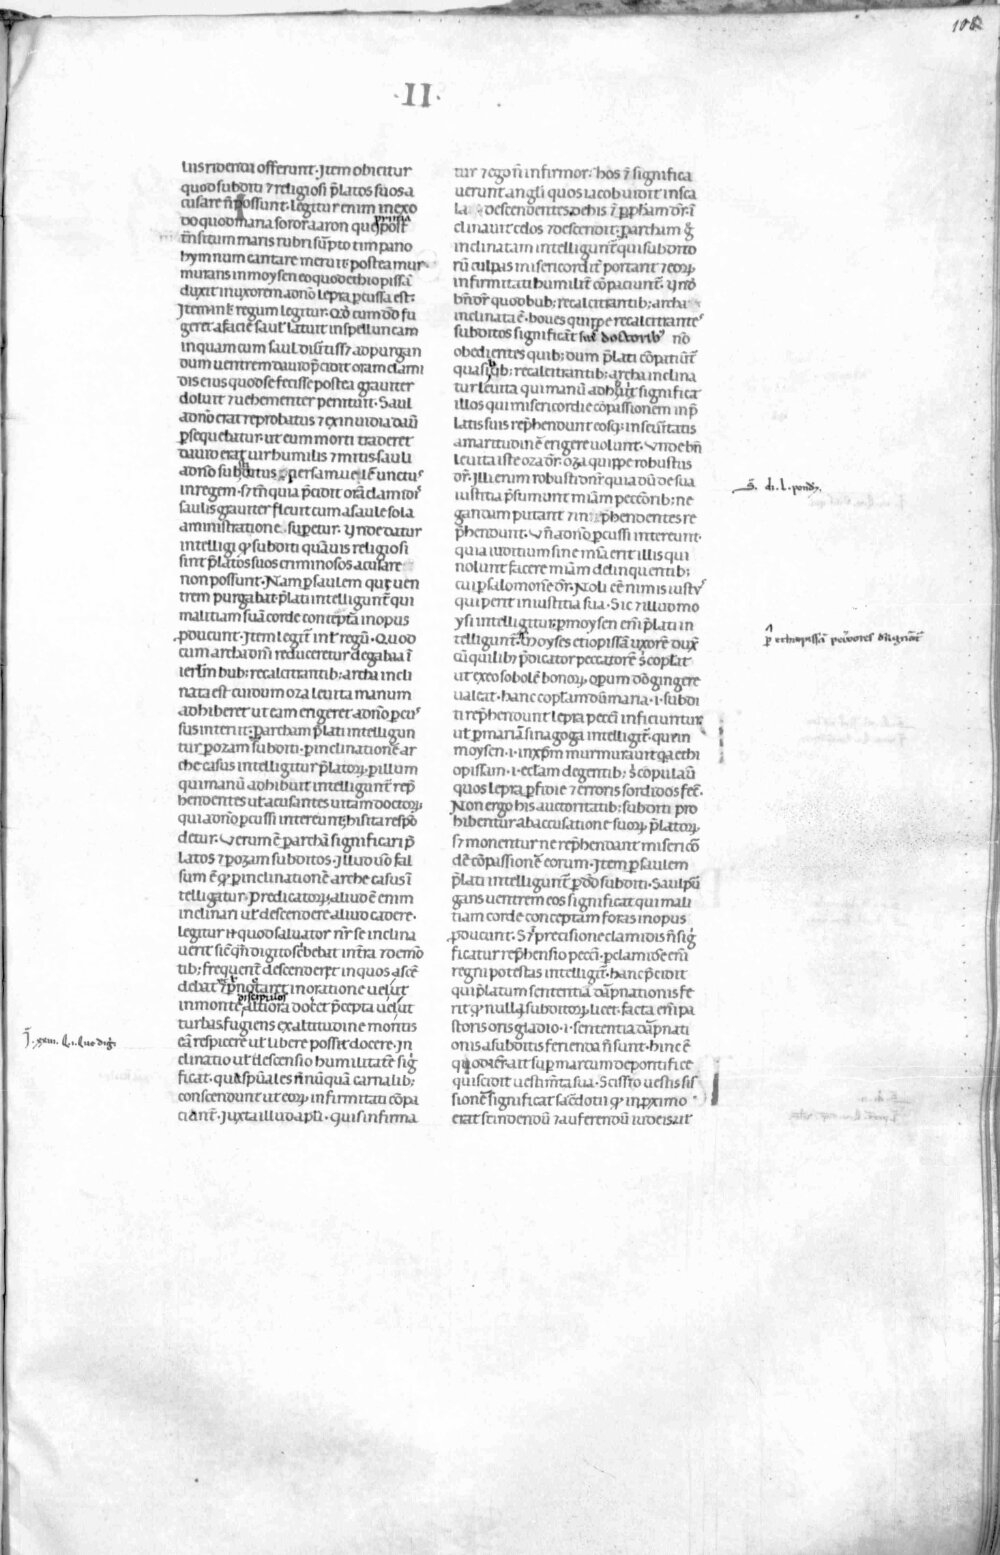 108
·II·
lus ridendi offerunt. Item obicitur
quod subditi ⁊ religiosi p̄latos suos a
cusare n̄ possunt. legitur enim in exo
do quod maria soror aaron que post
prima
t̄nsitum maris rubri sūpto timpano
hymnum cantare meruit postea mur
murans in moysen eo quod ethiopissā
duxit in uxorem a dn̄o lepra ꝑcussa est.
Item in lib̄ regum legitur. Qd̄ cum dd̄ fu
geret a facie saul latuit in spelluncam
in quam cum saul diuertiss; ad purgan
dum uentrem dauid p̄cidit oram clami
dis eius quod se fecisse postea grauiter
doluit ⁊ uehementer penituit. Saul
a dn̄o erat reprobatus ⁊ ex inuidia dauid
ꝑsequebatur. ut eum morti traderet
dauid erat uir humilis ⁊ mitis sauli
a dn̄o subditus. ꝑ samuelē unctus
in regem. s; tn̄ quia p̄cidit orā clamidis
saulis grauiter fleuit cum a saule sola
aministratione supetur. Vnde datur
intelligi ꝙ subditi quāuis religiosi
sint p̄latos suos criminosos acusare
non possunt. Nam ꝑ saulem qui uen
trem purgabat p̄lati intelligunt̄ qui
malitiam suā corde conceptā in opus
ꝓducunt. Item legit̄ in lib̄ regū. Quod
cum archa dn̄i reduceretur de gabaa ī
ierl̄m bub; recalcitrantib; archa incli
nata est. cui dum oza leuita manum
adhiberet ut eam erigeret a dn̄o ꝑcus
sus interiit. ꝑ archam p̄lati intelligun
tur ꝑ ozam subditi. ꝑ inclinationē ar
che casus intelligitur p̄latoꝝ. ꝑ illum
qui manū adhibuit intelligunt̄ rep̄
hendentes ut acusantes uitam doctoꝝ
qui a dn̄o ꝑcussi intereunt; his ita respō
detur. Verum ē ꝑ archā significari p̄
latos ⁊ ꝑ ozam subditos. Illud u̓o fal
sum ē ꝙ ꝑ inclinationē arche casus ī
telligatur predicatoꝝ, aliud ē enim
inclinari ut descendere aliud cadere.
legitur ꝙ quod saluator nr̄ se inclina
uerit sic q̄n̄ digito sc̓bebat in tr̄a ⁊ de mō
tib; frequent̄ descenderet in quos ascē
debat ꝑnoctaret in oratione uel ut
discipulos
in monte altiora docet p̄cepta uel ut
turbas fugiens ex altitudine montis
eā respicere ut libere possit docere. In
clinatio ut descensio humilitatē sig̓
ficat. qua sp̄uales n̄nūquā carnalib;
conscendunt ut eoꝝ infirmitati cōpa
ciant̄. Iuxta illud apl̄i. quis infirma
ī. xxiii. q̄. i.
tur ⁊ ego n̄ infirmor. hos ⁊ significa
uerunt angli quos iacob uidit in sca
la descendentes. de his ⁊ ꝑ ꝓph̄am dr̄. ī
clinauit celos ⁊ descendit. ꝑ archam g̓
inclinatam intelligunt̄ qui subdito
rū culpas misericordit̄ portant ⁊ eoꝝ
infirmitati humilit̄ cōpaciunt̄. Vnd̄
bn̄ dr̄ quod bub; recalcitrantib; archa
inclinata ē. boues quippe recalcitrantes
subditos significāt suis doctorib; nō
obedientes quib; dum p̄lati cōpatiūt̄
quasi bub; recalcitrantib; archa inclina
tur leuita qui manū adhibuit significat
illos qui misericordie cōpassionem in p̄
latis suis rep̄hendunt eosq; in seueritatis
amaritudinē erigere uolunt. Vnde bn̄
leuita iste oza dr̄. oza quippe robustus
dr̄. Illi enim robusti dn̄r quia dū de sua
iustitia p̄sumunt mīam peccorib; ne
gandam putant ⁊ in rep̄hendentes re
p̄hendunt. Vn̄ a dn̄o ꝑcussi intereunt.
quia iuditium sine mīa erit illis qui
nolunt facere mīam delinquentib;
cui ꝑ salomonē dr̄. Noli eē nimis iustus
qui perit in iustitia sua. Sic ⁊ illud mo
ysi intelligitur. ꝑ moysen em̄ p̄lati in
telligunt̄. Moyses etiopissā uxorē dux̄
cū quilib; p̄dicator peccatorē s̓ copulat
ut ex eo sobolē bonoꝝ opum dō gingnere
ualeat. hanc coplam dū maria. i. subdi
ti rep̄hendunt lepra pecci inficiuntur
ut ꝑ mariā sinagoga intelligit̄. que in
moysen. i. in xp̄m murmurauit qꝛ ethi
opissam. i. ecl̄am de gentib; s̓ copulauit
quos lepra ꝑfidie ⁊ erroris sordidos fec̄.
Non ergo his auctoritatib; subditi pro
hibentur ab accusatione suoꝝ p̄latoꝝ
s; monentur ne rep̄hendant misericō
dē cōpassionē eorum. Item ꝑ saulem
p̄lati intelligunt̄ ꝑ dd̄ subditi. Saul pur
gans uentrem eos significat qui mali
tiam corde conceptam foras in opus
ꝓducunt. S; ꝑ precisionē clamidis n̄ sig̓
ficatur rep̄hensio pecci. ꝑ clamidē em̄
regni potestas intelligit̄. hanc p̄cidit
qui p̄latum sententia dāpnationis fe
rit ꝙ nulli subditoꝝ licet. facta em̄ pa
storis oris gladio. i. sententia dāpnati
onis a subditis ferienda n̄ sunt. hinc ē
quod erat in sup̄ marcum de pontifice
qui scidit uestimta sua. Scissio uestis sis
sionē significat sacdotii ꝙ in ꝓximo
erat scindendū ⁊ auferendū iudeis. ut
ꝑ ethiopissā peccatores designātur